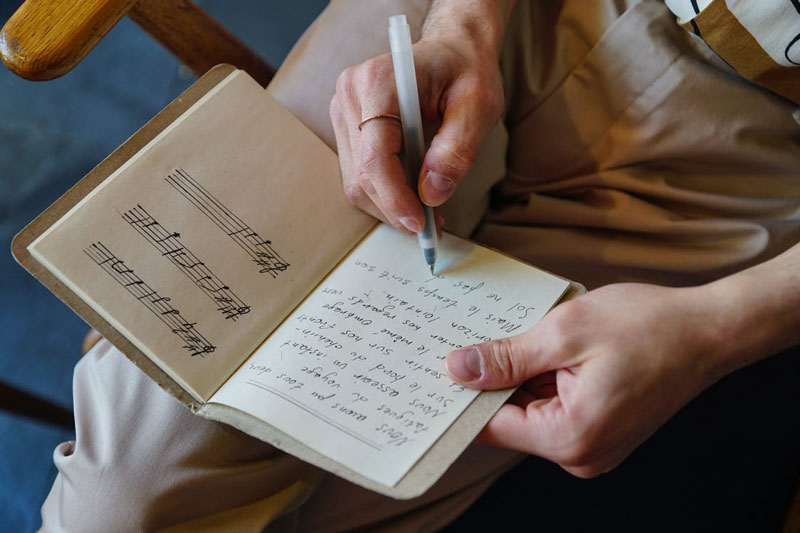 Nous avons pu toos deu
fatigués du voyage
Nous asseoir un instant
sur le bord du chemin-
sentir sur nos fronts
le même ombrage
nos regards vers
horizon lointain.
Mais le temps suit son
Sol ne pas